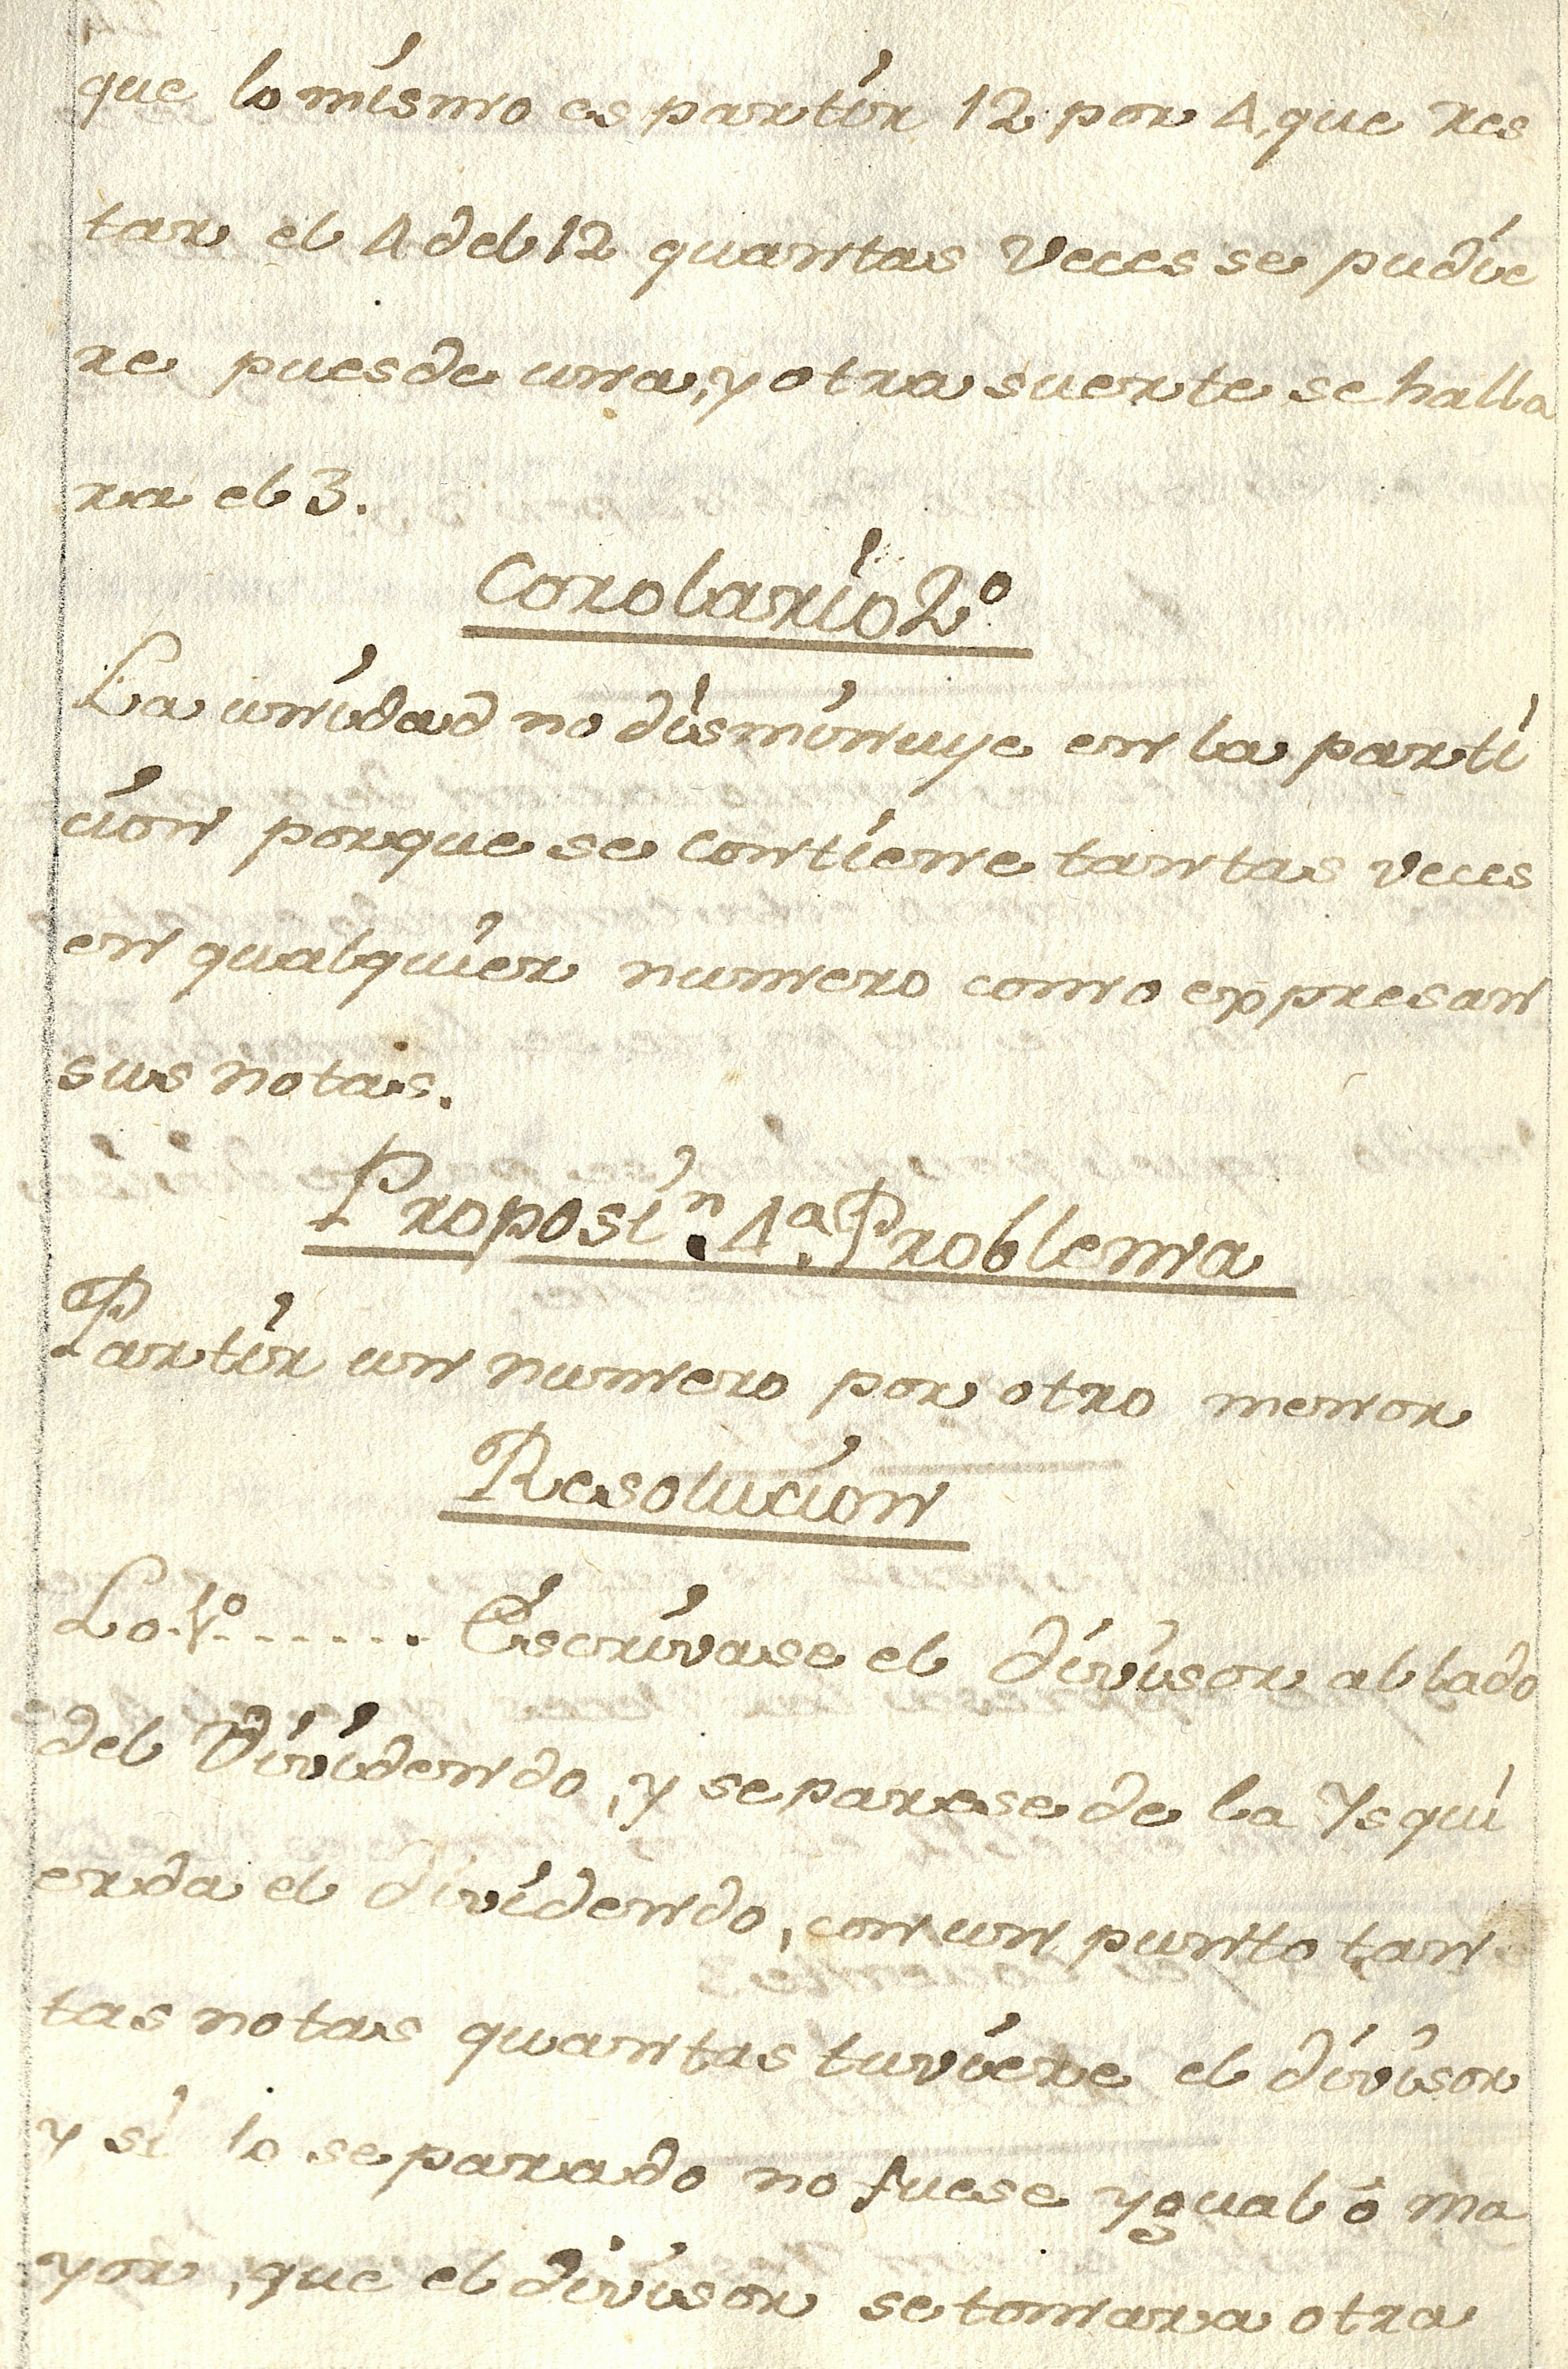 que lo mismo es partir 12 por 4, que res
tar el 4 del 12 quantas Veces se pudie
re pues de una, y otra suerte se halla
ra el 3.
Corolario 2º
La unidad no disminuye en la parti
cion porque se contiene tantas veces
en qualquier numero como expresan
sus notas.
Proposiⁿ. 4ª. Problema
Partir un numero por otro menor
Resolucion
Lo 1º....... Escrivase el divisor al lado
del Dividendo, y separese de la Ysqui
erda el dividendo, con un punto tan
tas notas quantas tuviere el divisor
y si lo separado no fuese ygual ó ma
yor, que el divisor se tomara otra